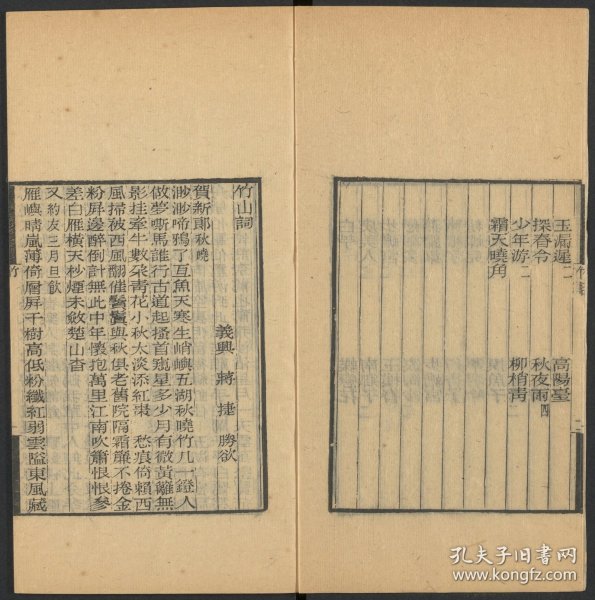 玉漏遲二 高陽臺
探春令 秋夜雨四
少年游二 柳梢青
霜天曉角
竹山詞
義興 蔣 捷 勝欲
賀新郎秋曉
渺渺啼鴉了亘魚天寒生峭嶼五湖秋曉竹几一鐙人
做夢嘶馬誰行古道起搔首窺星多少月有微黃籬無
影挂牽牛數朶靑花小秋太淡添紅棗 愁痕倚賴西
風掃被西風翻催鬢鬒與秋俱老舊院隔霜簾不捲金
粉屏邊醉倒計無此中年懷抱萬里江南吹簫恨恨參
差白雁橫天杪煙未斂楚山杳
又約友三月旦飲
雁嶼晴嵐薄倚層屏千樹高低粉纖紅弱雲隘東風藏
竹
孔夫子旧书网
www.kongfz.com